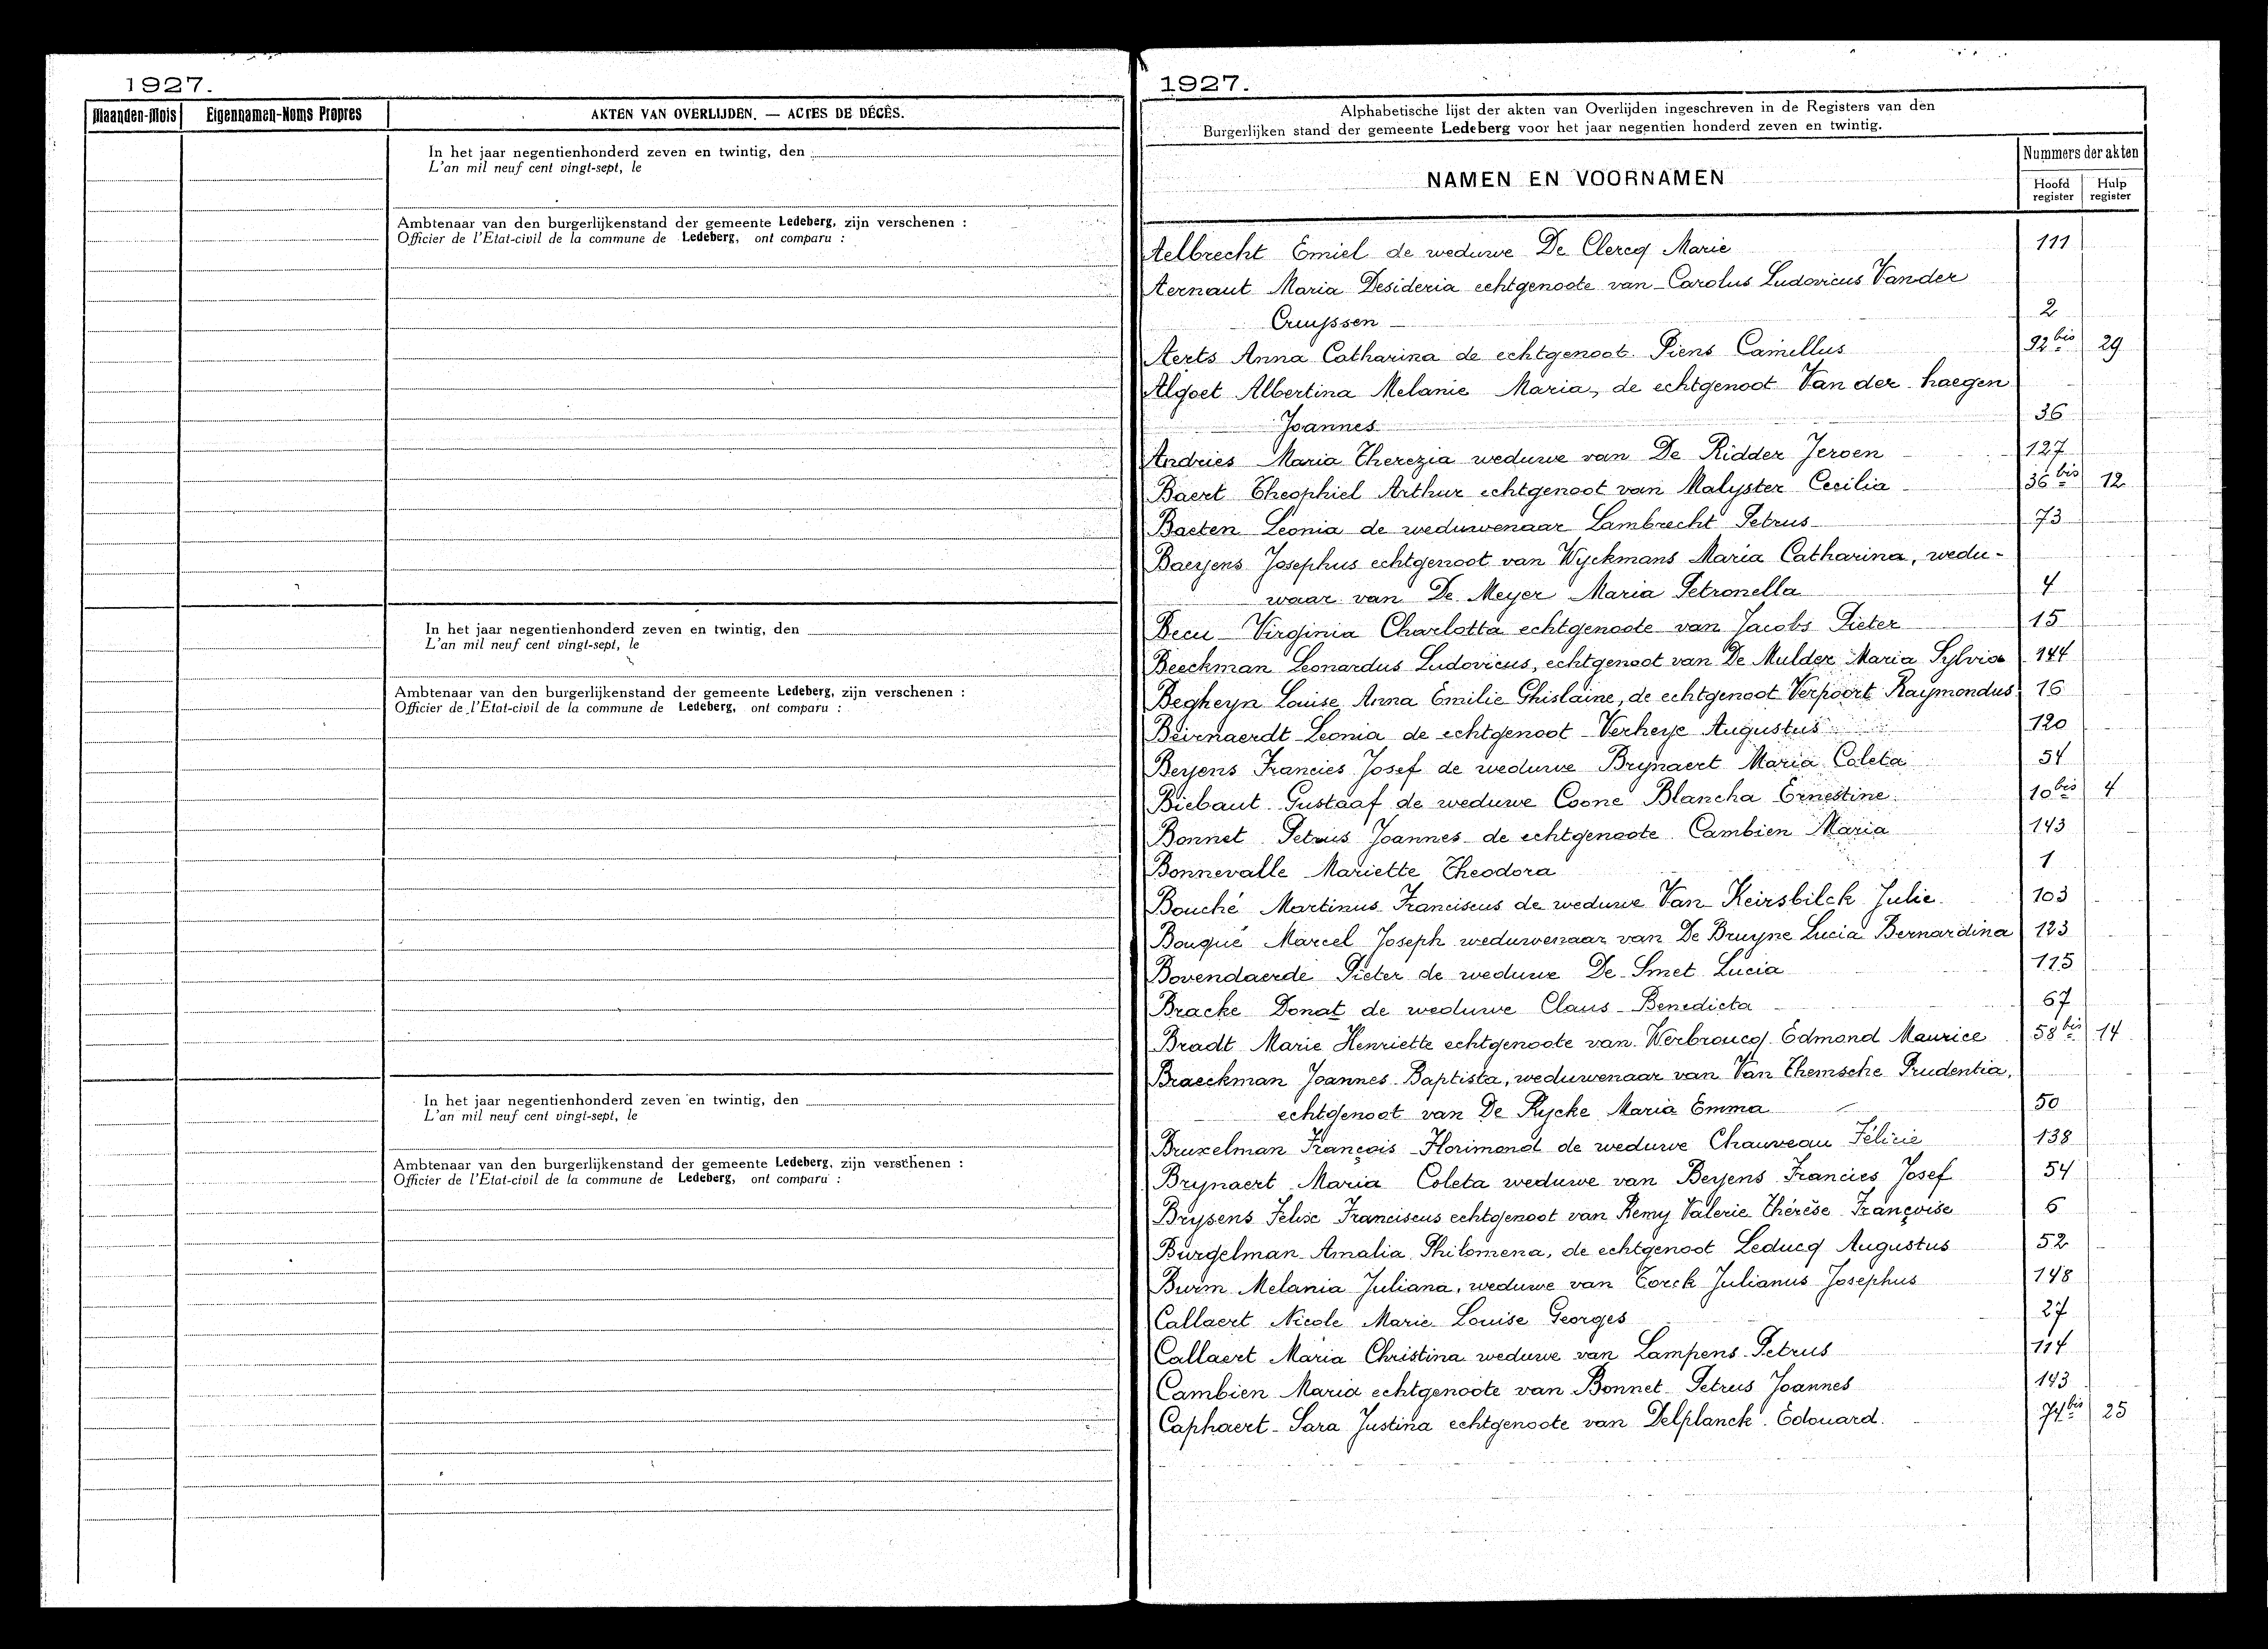 1927.
Maanden-Mois Eigennamen-Noms Propres AKTEN VAN OVERLIJDEN. — ACTES DE DÉCÈS.
In het jaar negentienhonderd zeven en twintig, den
L'an mil neuf cent vingt-sept, le
Ambtenaar van den burgerlijkenstand der gemeente Ledeberg, zijn verschenen :
Officier de l'Etat-civil de la commune de Ledeberg, ont comparu :
In het jaar negentienhonderd zeven en twintig, den
L'an mil neuf cent vingt-sept, le
Ambtenaar van den burgerlijkenstand der gemeente Ledeberg, zijn verschenen :
Officier de l'Etat-civil de la commune de Ledeberg, ont comparu :
In het jaar negentienhonderd zeven en twintig, den
L'an mil neuf cent vingt-sept, le
Ambtenaar van den burgerlijkenstand der gemeente Ledeberg, zijn verschenen :
Officier de l'Etat-civil de la commune de Ledeberg, ont comparu :
1927.
Alphabetische lijst der akten van Overlijden ingeschreven in de Registers van den
Burgerlijken stand der gemeente Ledeberg voor het jaar negentien honderd zeven en twintig.
NAMEN EN VOORNAMEN
Nummers der akten
Hoofd register Hulp register
Aelbrecht Emiel de weduwe De Clercq Marie 111
Aernaut Maria Desideria echtgenoote van Carolus Ludovicus Vander
Cruyssen 2
Aerts Anna Catharina de echtgenoot Piens Camillus 92 bis 29
Algoet Albertina Melanie Maria, de echtgenoot Van der haegen
Joannes 36
Andries Maria Therezia weduwe van De Ridder Jeroen 127
Baert Theophiel Arthur echtgenoot van Malyster Cecilia 36 bis 12
Baeten Leonia de weduwenaar Lambrecht Petrus 73
Baeyens Josephus echtgenoot van Wyckmans Maria Catharina, wedu-
waar van De Meyer Maria Petronella 4
Becu Virginia Charlotta echtgenoote van Jacobs Pieter 15
Beeckman Leonardus Ludovicus, echtgenoot van De Mulder Maria Sylvia 144
Begheyn Louise Anna Emilie Ghislaine, de echtgenoot Verpoort Raymondus 16
Beirnaerdt Leonia de echtgenoot Verheye Augustus 120
Beyens Francies Josef de weduwe Brynaert Maria Coleta 54
Biebaut Gustaaf de weduwe Coone Blancha Ernestine 10 bis 4
Bonnet Petrus Joannes de echtgenoote Cambien Maria 143
Bonnevalle Mariette Theodora 1
Bouché Martinus Franciscus de weduwe Van Keirsbilck Julie. 103
Bouqué Marcel Joseph weduwenaar van De Bruyne Lucia Bernardina 123
Bovendaerde Pieter de weduwe De Smet Lucia 115
Bracke Donat de weduwe Claus Benedicta 67
Bradt Marie Henriette echtgenoote van Werbroucq Edmond Maurice 58 bis 14
Braeckman Joannes Baptista, weduwenaar van Van Themsche Prudentia,
echtgenoot van De Rycke Maria Emma 50
Bruxelman François Florimond de weduwe Chauveau Félicie 138
Brynaert Maria Coleta weduwe van Beyens Francies Josef 54
Brysens Felix Franciscus echtgenoot van Remy Valerie Thérèse Françoise 6
Burgelman Amalia Philomena, de echtgenoot Leducq Augustus 52
Burm Melania Juliana, weduwe van Torck Julianus Josephus 148
Callaert Nicole Marie Louise Georges 27
Callaert Maria Christina weduwe van Lampens Petrus 114
Cambien Maria echtgenoote van Bonnet Petrus Joannes 143
Caphaert Sara Justina echtgenoote van Delplanck Edouard. 74 bis 25